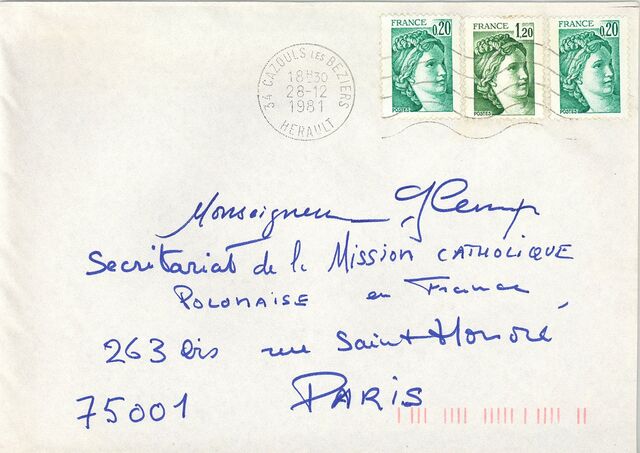 FRANCE 0,20
FRANCE 1,20
FRANCE 0,20
POSTES
POSTES
POSTES
34 CAZOULS LES BEZIERS
18H30
28-12
1981
HERAULT
Monseigneur Glemp
Secrétariat de la Mission CATHOLIQUE
POLONAISE en France
263 bis rue Saint Honoré
75001 PARIS